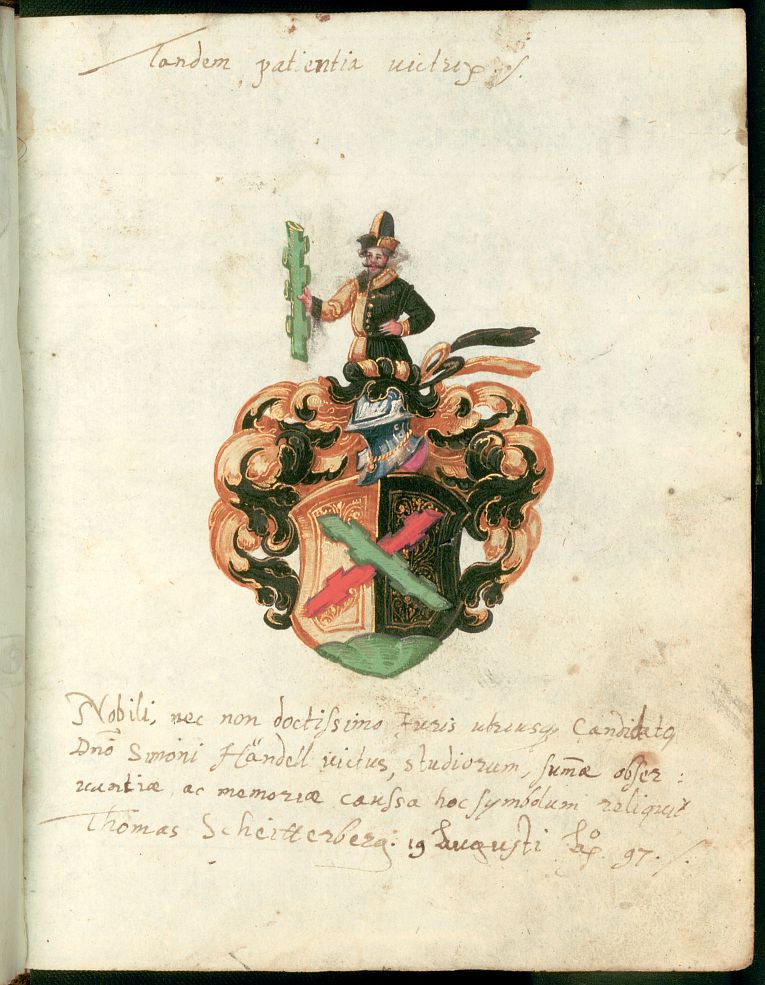 Tandem patientia uictrix ./.
Nobili, nec non doctissimo Iuris utriusq Candidato
Dnō Simoni Händell uictus, studiorum, sum̄æ obser:
uantiæ, ac memoriæ caussa hoc symbolum reliquit
Thomas Scheitterberg. 19 Augusti Aº 97 ./.